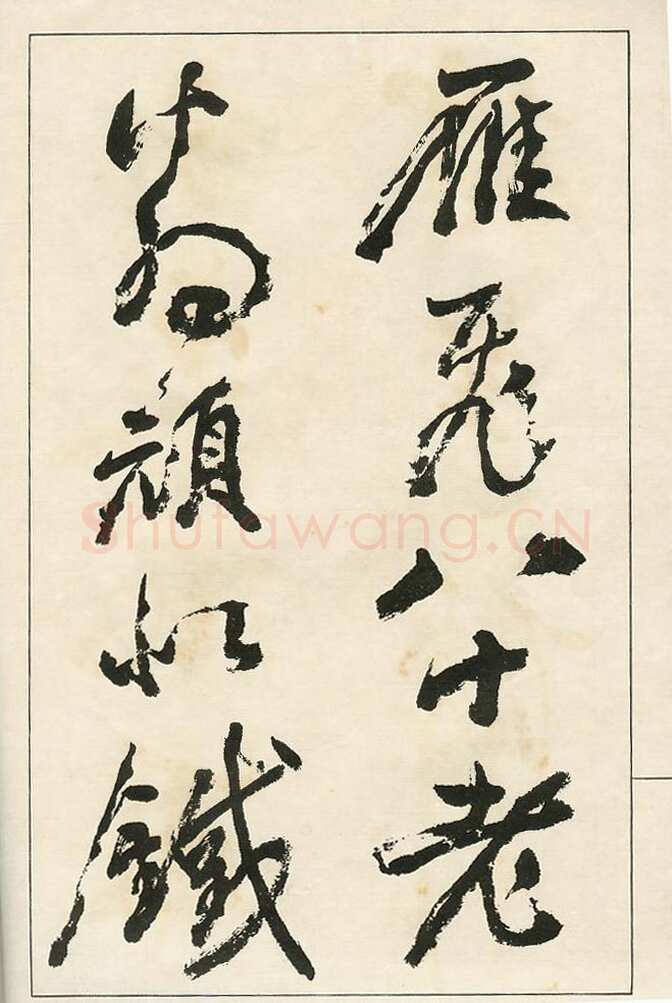 雁飛八十老
翁頑似鐵
Shufawang.CN